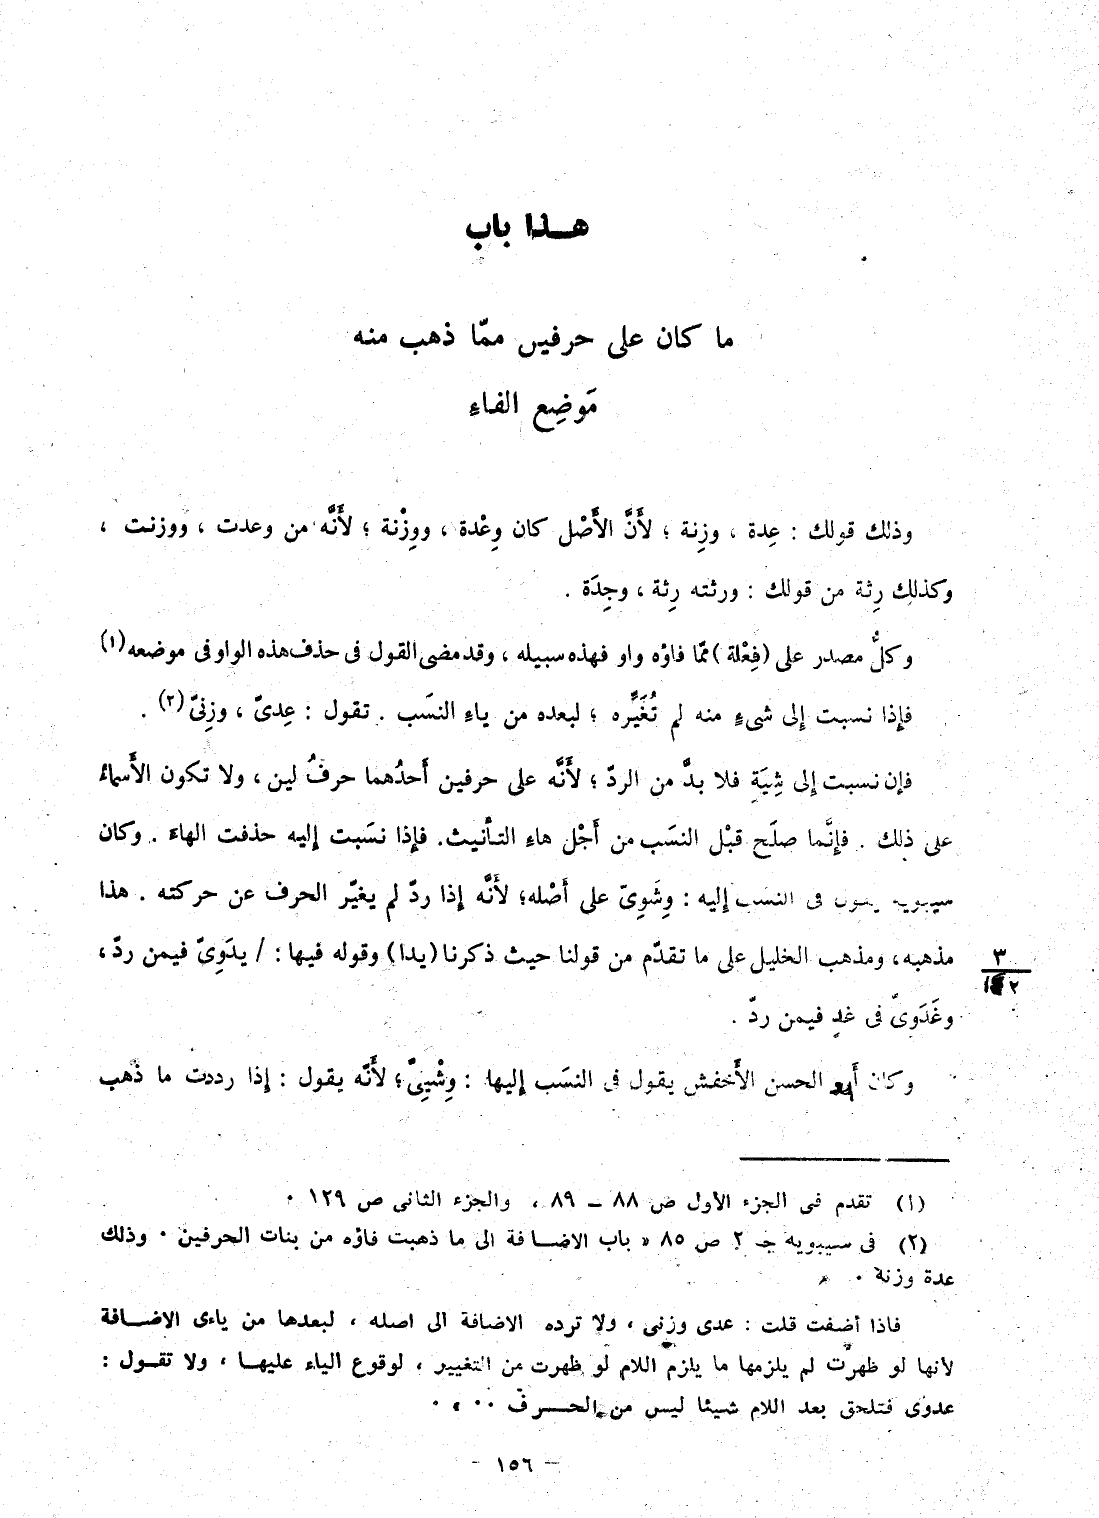 هــذا باب
ما كان على حرفين ممّا ذهب منه
مَوضِع الفاءِ
وذلك قولك : عِدة ، وزِنة ؛ لأَنَّ الأَصْل كان وِعْدة ، ووِزْنة ؛ لأَنَّه من وعدت ، ووزنت ،
وكذلك رِثة من قولك : ورثته رِثة ، وجِدَة .
وكلُّ مصدر على (فِعْلة) ممّا فاؤه واو فهذه سبيله ، وقد مضى القول فى حذف هذه الواو فى موضعه(١)
فإِذا نسبت إِلى شىءٍ منه لم تُغَيِّره ؛ لبعده من ياءِ النسَب . تقول : عِدىّ ، وزِنىّ(٢) .
فإِن نسبت إِلى شِيَةٍ فلا بدَّ من الردّ ؛ لأَنَّه على حرفين أَحدُهما حرفُ لين ، ولا تكون الأَسماءُ
على ذلك . فإِنَّما صلَح قبْل النسَب من أَجْل هاءِ التأنيث. فإِذا نسَبت إِليه حذفت الهاءَ . وكان
سيبويه يقول فى النسَب إِليه : وِشَوِىّ على أَصْله؛ لأَنَّه إِذا ردّ لم يغيّر الحرف عن حركته . هذا
مذهبه، ومذهب الخليل على ما تقدّم من قولنا حيث ذكرنا (يدا) وقوله فيها: / يدَوِىّ فيمن ردّ،
٣
٢
وغَدَوىّ فى غدٍ فيمن ردّ .
وكان أَبو الحسن الأَخفش يقول فى النسَب إِليها : وِشْيِىّ؛ لأَنَّه يقول : إِذا رددت ما ذهب
(١) تقدم فى الجزء الأول ص ٨٨ – ٨٩ ، والجزء الثانى ص ١٢٩ .
(٢) فى سيبويه جـ ٢ ص ٨٥ « باب الاضــافة الى ما ذهبت فاؤه من بنات الحرفين . وذلك
عدة وزنة .
فاذا أضفت قلت : عدى وزنى ، ولا ترده الاضافة الى اصله ، لبعدها من ياءى الاضــافة
لأنها لو ظهرت لم يلزمها ما يلزم اللام لو ظهرت من التغيير ، لوقوع الياء عليهــا ، ولا تقــول :
عدوى فتلحق بعد اللام شيئا ليس من الحــرف .. » .
– ١٥٦ –